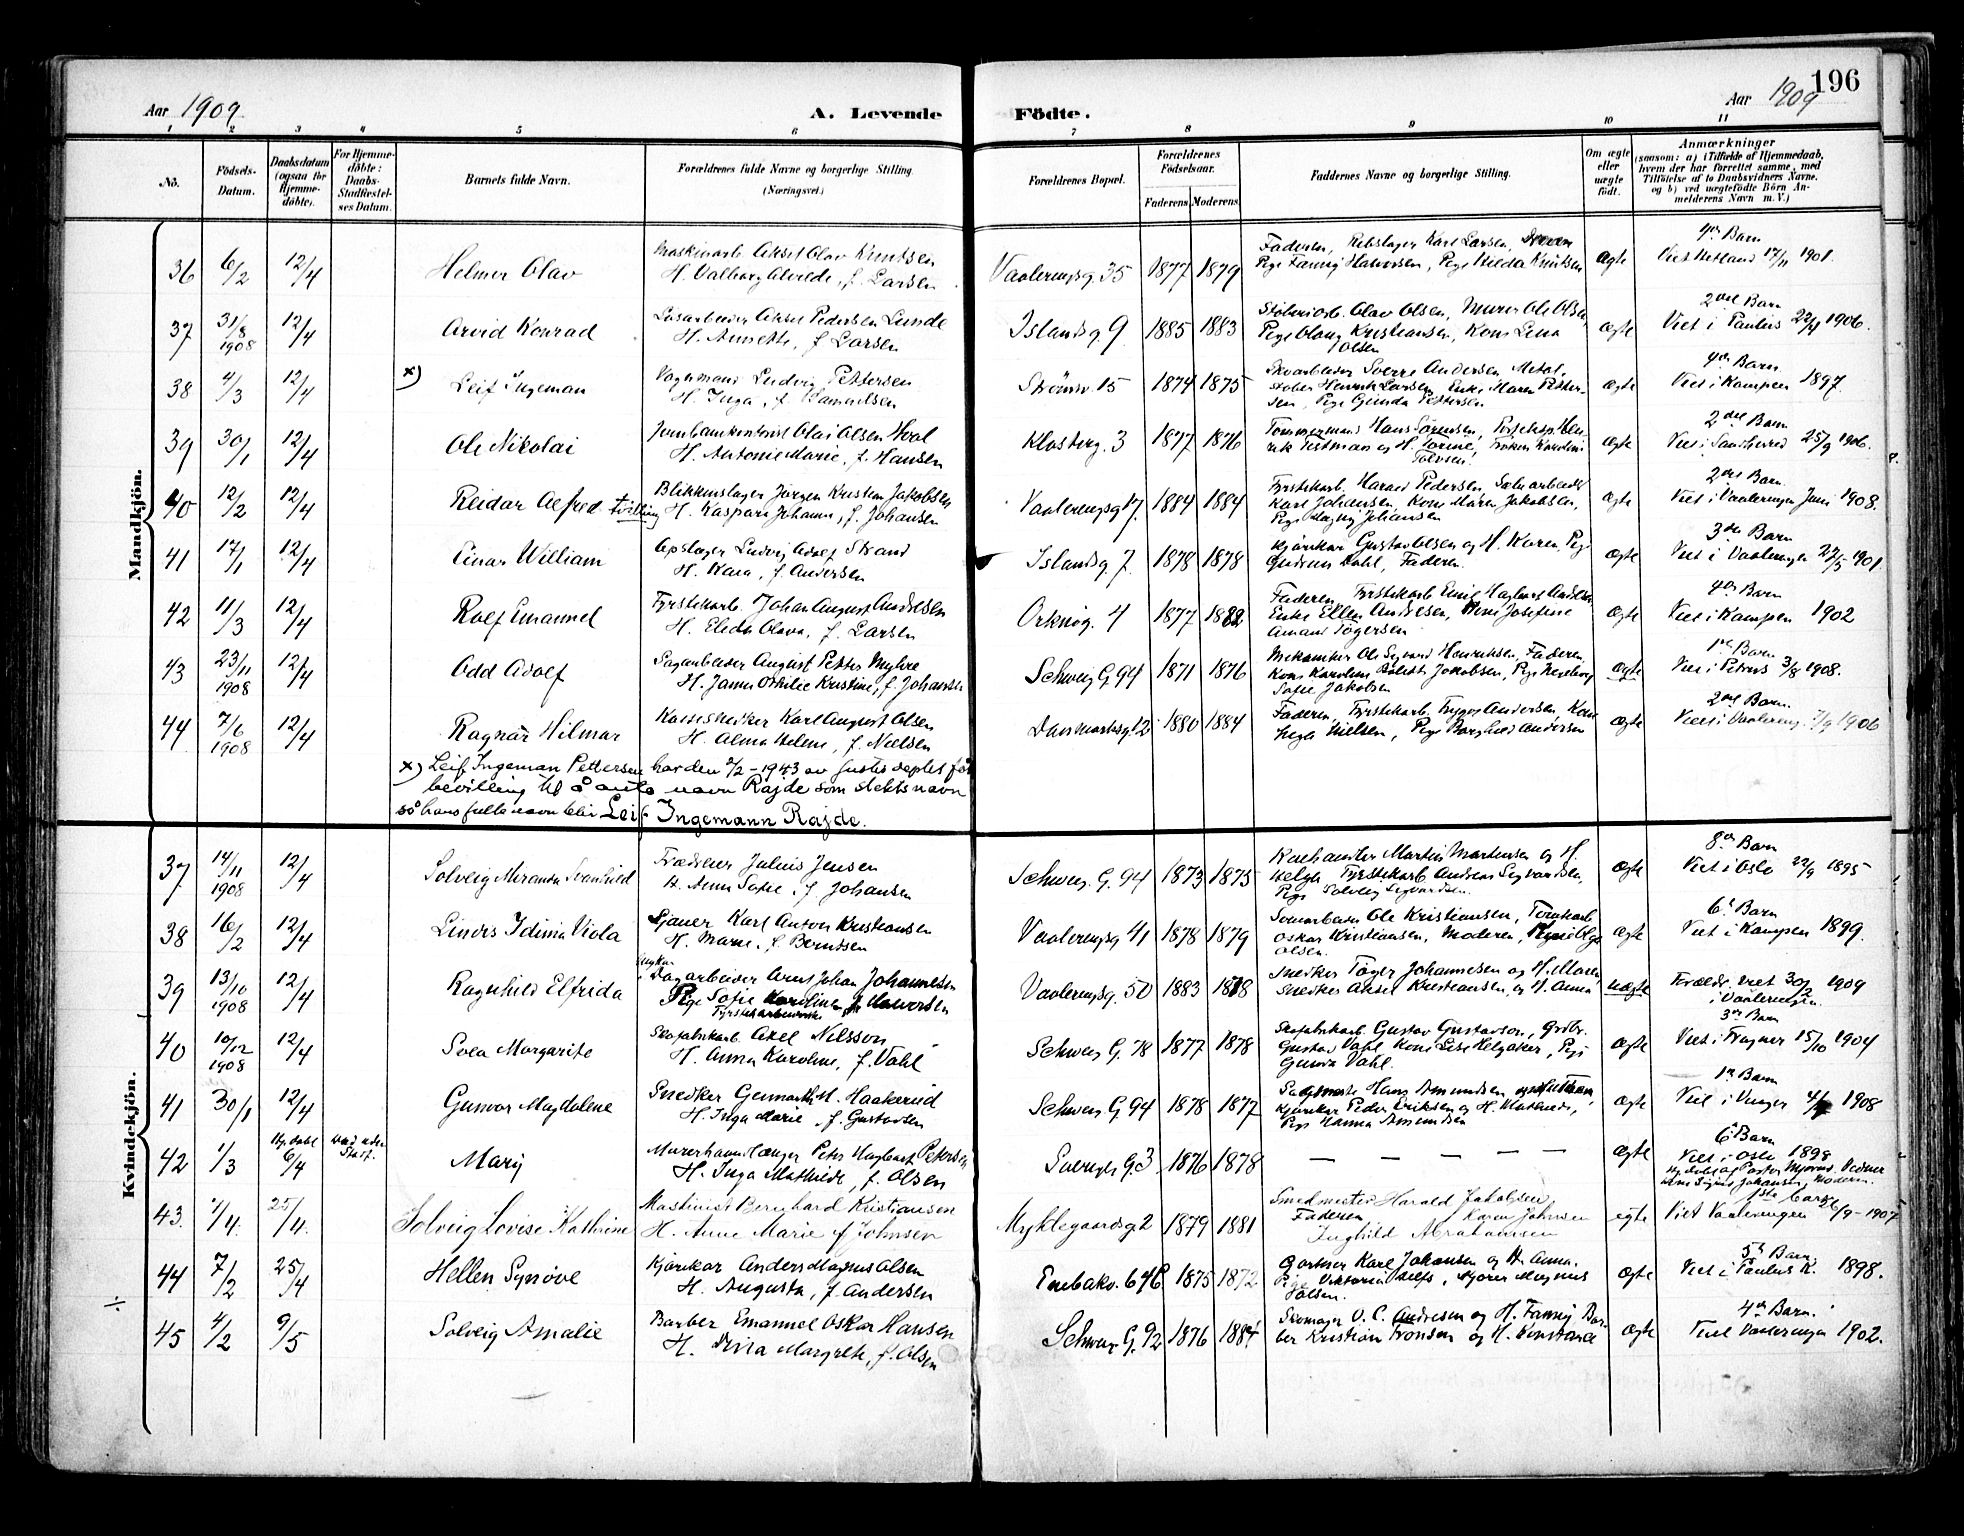 Aar 1909
A. Levende
Födte.
Aar 1909
196
1 2 3 4 5 6 7 8 9 10 11
No.
Födsels-
Datum.
Daabsdatum
(ogsaa for
Hjemme-
döbte).
For Hjemme-
döbte:
Daabs-
Stadfæstel-
ses Datum.
Barnets fulde Navn.
Forældrenes fulde Navne og borgerlige Stilling.
(Næringsvei.)
Forældrenes Bopæl.
Forældrenes
Födselsaar.
Faderens. Moderens.
Faddernes Navne og borgerlige Stilling.
Om ægte
eller
uægte
født.
Anmærkninger
(saasom: a) i Tilfælde af Hjemmedaab,
hvem der har forrettet samme, med
Tilföielse af to Daabsvidners Navne,
og b) ved uægtefödte Börn An-
melderens Navn m. V.)
Mandkjön.
36 6/2 12/4 Helmer Olav
Maskinarb. Aksel Olav Knutsen
H. Valborg Alvilde, f. Larsen
Vaalerengsg. 35 1877 1879
Faderen, Rebslager Karl Larsen,
Pige Fanny Halvorsen, Pige Hilda Knutsen
ægte
4de Barn
Viet Hetland 17/11 1901.
37 31/8 1908 12/4 Arvid Konrad
Aksel Pedersen Lunde
H. Annette, f. Larsen
Islandsg. 9 1885 1883
Olav Olsen, Murer Ole Olsen,
Pige Olaug Kristiansen, Kone Lena
Olsen
ægte
2det Barn
Viet i Paulus 1906.
38 4/3 12/4 x) Leif Ingeman
Vognmand Ludvig Pettersen
H. Inga, f. Samuelsen
Strømsv. 15 1874 1875
Skoarbeider Sverre Andersen Metal-
støber Henrik Larsen, Enke Maren Petter-
sen, Pige Gunda Pettersen
ægte
4de Barn
Viet i Kampen 1897
39 30/1 12/4 Ole Nikolai
Olai Olsen Hval
H. Antonie Marie, f. Hansen
Klosterg. 3 1877 1876
Tømmermand Hans Sørensen,
ægte
2det Barn
Viet i 25/9 1906.
40 12/2 12/4 Reidar Alfred tvilling
Blikkenslager Jørgen Kristian Jakobsen
H. Kaspara Johanne, f. Johansen
Vaalerengsg 17. 1884 1884
Fyrstikarb. Harald Pedersen,
Karl Johansen, Kone Maren Jakobsen,
Pige Magny Johansen
ægte
2det Barn.
Viet i Vaalerengen Juni 1908.
41 17/1 12/4 Einar William
Ludvig Adolf Strand
H. Kaia, f. Andersen
Islandsg. 7. 1878 1878
Kjørekar Gustav Olsen og H. Karen, Pige
Gudrun Dahl, Faderen.
ægte
3de Barn
Viet i Vaalerengen 27/5 1901
42 11/3 12/4 Rolf Emanuel
Fyrstikarb. Johan August Andresen
H. Elida Olava, f. Larsen
Orknøg. 4 1877 1882
Faderen, Fyrstikarb. Emil Hagbart Andresen
Enke Ellen Andresen, Pige Josefine
Amanda Tøgersen
ægte
4de Barn
Viet i Kampen 1902
43 23/11 1908 12/4 Odd Adolf
Sagarbeider August Petter Myhre
H. Janna Othilie Kristine, f. Johansen
Schweig. G. 94 1871 1876
Mekaniker Ole Sigvard Henriksen, Faderen,
Jakobsen, Pige
Sofie Jakobsen
ægte
1ste Barn
Viet i Petrus 3/8 1908.
44 7/6 1908 12/4 Ragnar Hilmar
Kassesnedker Karl August Olsen
H. Alma Helene, f. Nielsen
Danmarksg. 2 1880 1884
Faderen, Fyrstikarb. Trygve Andersen, Kone
Helga Nielsen, Pige Borghild Andersen
ægte
2det Barn.
Viet i Vaalereng. 7/9 1906
x) Leif Ingeman Pettersen har den 2/2-1943 av Justisdeptet fått
bevilling til å anta navn Rajde som slektsnavn
så hans fulle navn blir Leif Ingemann Rajde.
Kvindekjön.
37 14/11 1908 12/4 Solveig Miranda Svanhild
Julius Jensen
H. Anna Sofie, f. Johansen
Schweig. G. 94 1873 1875
Martin Martinsen og H.
Helga, Fyrstikarb Andreas Sigvardsen,
Pige Solveig Sigvardsen.
ægte
8de Barn
Viet i Oslo 22/9 1895
38 16/2 12/4 Lindis Idinia Viola
Sjauer Karl Anton Kristiansen
H. Marie, f. Berntsen
Vaalerengsg 41 1878 1879
Ole Kristiansen, Tomtearb.
Oskar Kristiansen, Moderen, Pige Olga
Olsen.
ægte
6te Barn
Viet i Kampen 1899.
39 13/10 1908 12/4 Ragnhild Elfrida
Ungkar
Dagarbeider Arne Johan Johannesen
Pige Sofie Karoline Halvorsen
Fyrstikarbeiderske
Vaalerengsg. 50 1883 1878
Snedker Tøger Johannesen og H. Maren
Snedker Aksel Kristiansen, og H. Anna
uægte
Forældr. viet 30/1 1909
i Vaalerengen.
40 10/12 1908 12/4 Svea Margarite
Skofabrikarb. Axel Nilsson
H. Anna Karoline, f. Dahl
Schweig G. 78 1877 1878
Skofabrikarb. Gustav Gustavson, Grdbr.
Gustav Dahl, Kone Lise Helgaker, Pige
Gunda Dahl.
ægte
3de Barn
Viet i Fragner 15/10 1904
41 30/1 12/4 Gunvor Magdalene
Snedker Haakerud
H. Inga Marie, f. Gustavsen
Schweig G 94 1878 1877
Hans Amundsen
Kjørekar Peder Eriksen og H. Mathilde,
Pige Hanna Amundsen
ægte
1ste Barn
Viet i Vinger 1908
42 1/3 Hj. døbt 6/4 Mary
Murerhaandlanger Peter Hagbart Petersen
H. Inga Mathilde, f. Olsen
Sverigs G. 3 1876 1878
— — — — —
ægte
6te Barn
Viet i Oslo 1898
Hj. døbt af Pastor
Johansen, Moderen.
43. 1/4. 25/4. Solveig Lovise Kathrine
Maskinist Bernhard Kristiansen
H. Anne Marie f Johnsen
Myklegaardsg 2 1879 1881
Smedmester Harald Jakobsen
Faderen Karen Johnsen
Inghild Abrahamsen
egte
1ste barn
Viet Vaalerengen 26/9-1907
44 7/2 25/4 Hellen Synøve
Kjørekar Anders Magnus Olsen
H. Augusta, f. Andersen
Enebakv. 64b 1875 1872
Gartner Karl Johansen og H. Anna.
Pige Viktoria Magnus
Olsen.
ægte
5te Barn
Viet i Paulus K. 1898.
÷
45 4/2 9/5 Solveig Amalie
Barber Emanuel Oskar Hansen
H. Margrete, f. Olsen
Schweig. G. 92 1876 1884
Skomager O. C. Andresen og H. Fanny Bar-
ber Kristian Tronsen og H. Konstance
ægte
4de Barn.
Viet Vaalerengen 1902.